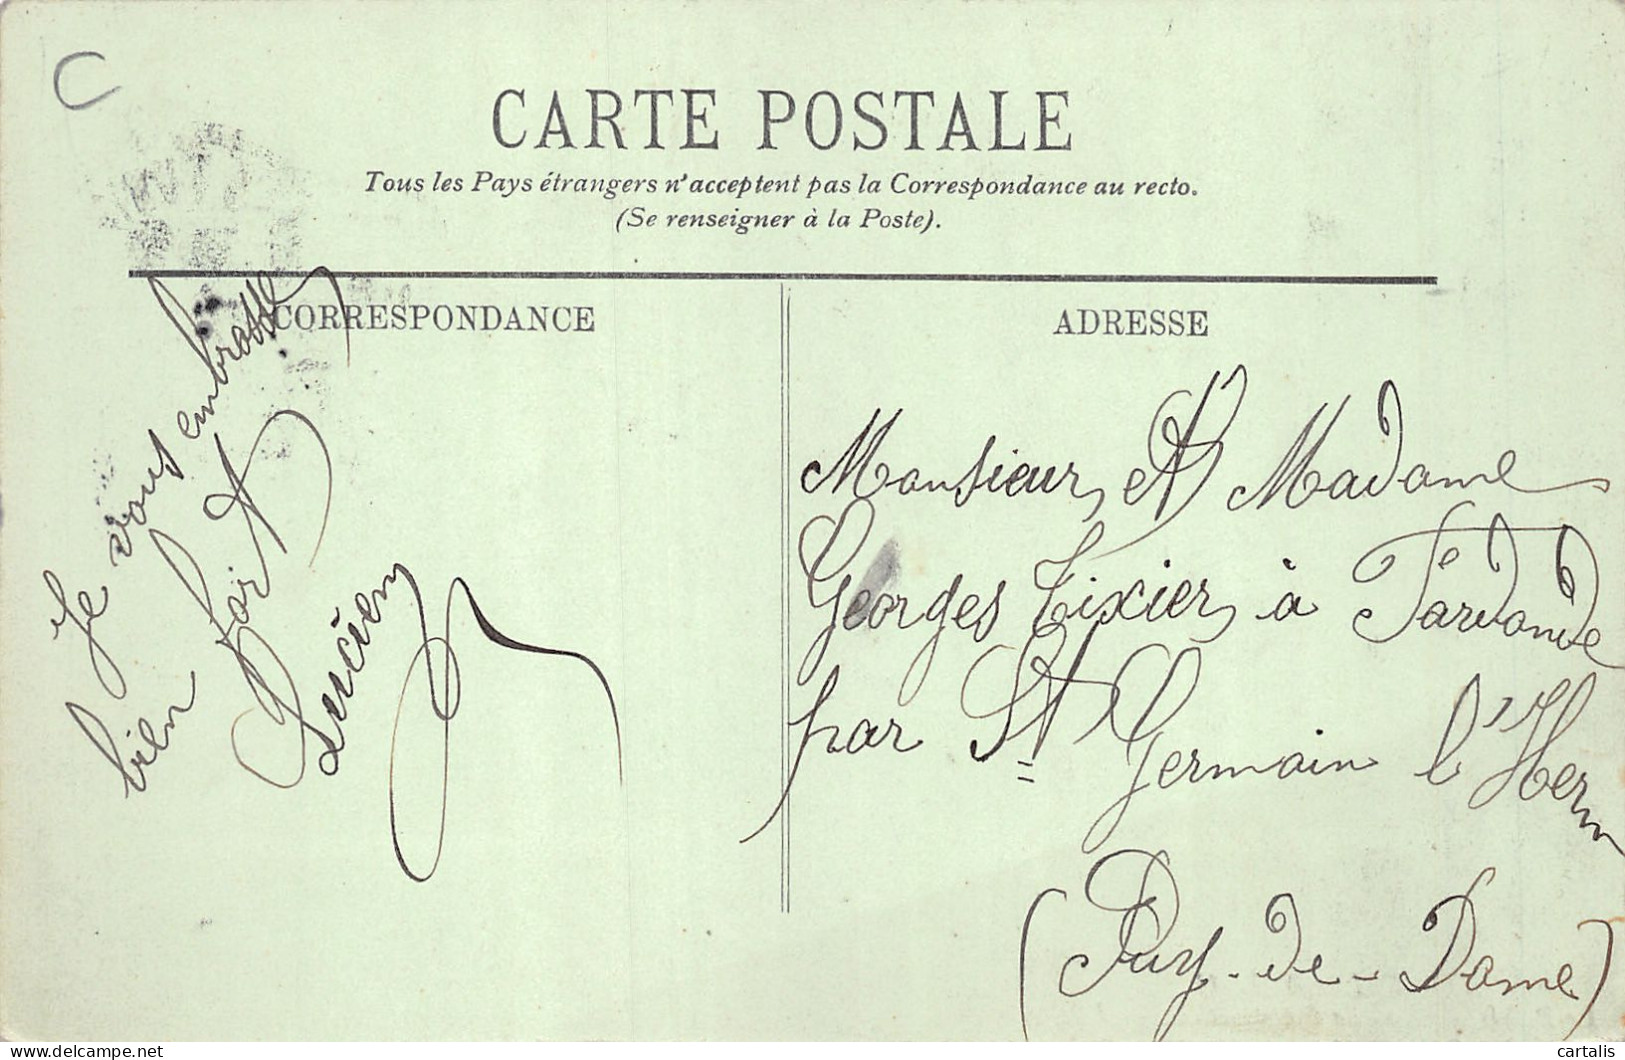 C
CARTE POSTALE
Tous les Pays étrangers n'acceptent pas la Correspondance au recto.
(Se renseigner à la Poste).
CORRESPONDANCE
Je vous embrasse
bien fort
Lucien
ADRESSE
Monsieur et Madame
Georges Tixier à
par St Germain l'Herm
(Puy-de-Dome)
delcampe.net
cartalis